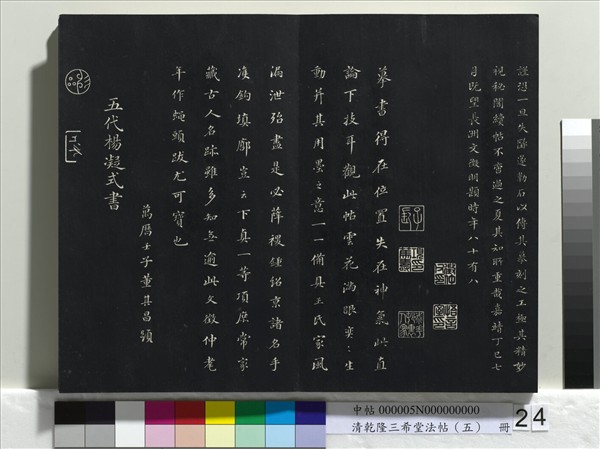 證恐一旦失臨遂勒石以傳其摹刻之工極其精妙
視秘閣續帖不啻過之夏其知所重哉嘉靖丁巳七
月既望長洲文徵明題時年八十有八
摹書得在位置失在神氣此直
論下技耳觀此帖雲花滿眼奕〻生
動并其用墨之意一一備具王氏家風
漏泄殆盡是必薛稷鍾紹京諸名手
廓填
真一等項庶常家
藏古人名跡雖多知無逾此文徵仲耄
年作蠅頭跋尤可寶也
萬曆壬子董其昌題
五代楊凝式書
中帖 000005N000000000
清乾隆三希堂法帖（五） 冊
24